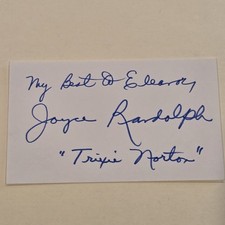 My Best To Eleanor,
Joyce Randolph
"Trixie Norton"